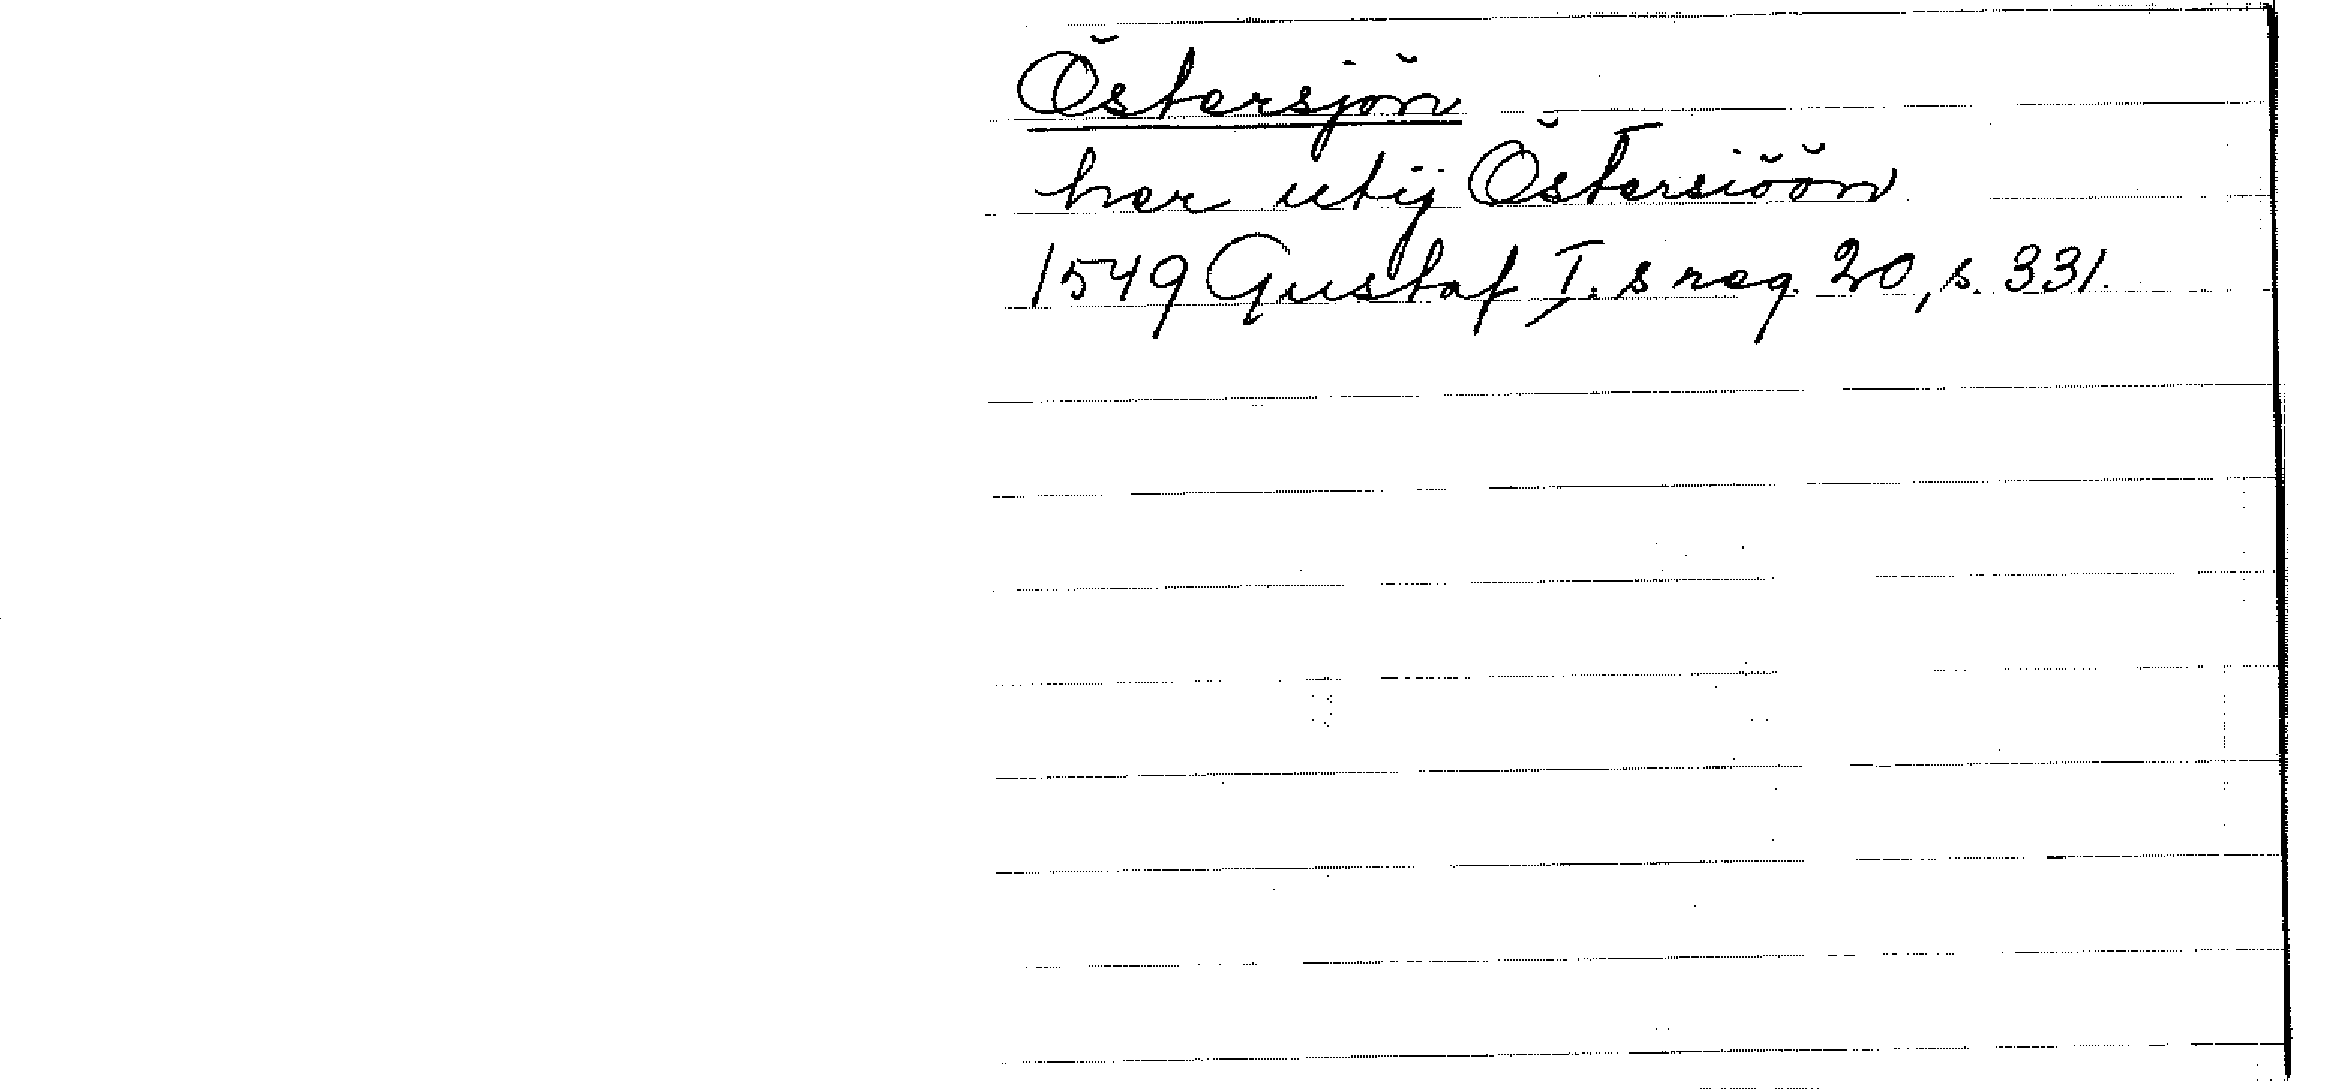 Östersjön
her utij Östersiöön
1549 Gustaf I.s reg. 20, s. 331.